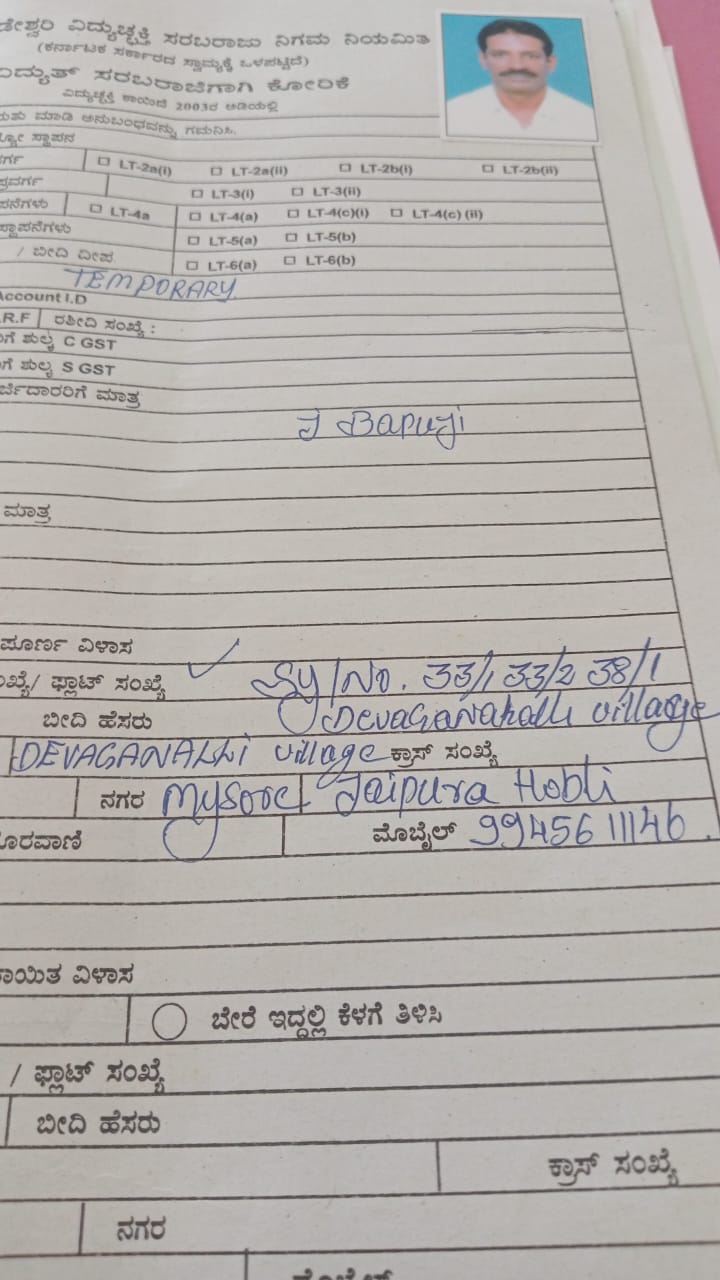 ಡೇಶ್ವರಿ ವಿದ್ಯುಚ್ಛಕ್ತಿ ಸರಬರಾಜು ನಿಗಮ ನಿಯಮಿತ
(ಕರ್ನಾಟಕ ಸರ್ಕಾರದ ಸ್ವಾಮ್ಯಕ್ಕೆ ಒಳಪಟ್ಟಿದೆ)
ವಿದ್ಯುತ್ ಸರಬರಾಜಿಗಾಗಿ ಕೋರಿಕೆ
ವಿದ್ಯುಚ್ಛಕ್ತಿ ಕಾಯಿದೆ 2003ರ ಅಡಿಯಲ್ಲಿ
ಮಾಡಿ ಅನುಬಂಧವನ್ನು ಗಮನಿಸಿ.
ಸ್ಥಾಪನ
ರ್ಗ ☐ LT-2a(i) ☐ LT-2a(ii) ☐ LT-2b(i) ☐ LT-2b(ii)
ಪ್ರವರ್ಗ ☐ LT-3(i) ☐ LT-3(ii)
ಪನೆಗಳು ☐ LT-4a ☐ LT-4(a) ☐ LT-4(c)(i) ☐ LT-4(c) (ii)
ಸ್ಥಾಪನೆಗಳು ☐ LT-5(a) ☐ LT-5(b)
/ ಬೀದಿ ದೀಪ ☐ LT-6(a) ☐ LT-6(b)
TEMPORARY
Account I.D
.R.F ರಶೀದಿ ಸಂಖ್ಯೆ :
ಗೆ ಶುಲ್ಕ C GST
ಗೆ ಶುಲ್ಕ S GST
ರ್ಜಿದಾರರಿಗೆ ಮಾತ್ರ
J Bapuji
ಮಾತ್ರ
ಪೂರ್ಣ ವಿಳಾಸ
ಖ್ಯೆ/ ಫ್ಲಾಟ್ ಸಂಖ್ಯೆ Sy/No. 33/1 33/2 38/1
ಬೀದಿ ಹೆಸರು DevaGanahalli village
DEVAGANALLi village ಕ್ರಾಸ್ ಸಂಖ್ಯೆ
ನಗರ Mysore Jaipura Hobli
ೂರವಾಣಿ ಮೊಬೈಲ್ 9945611146
ಾಯಿತ ವಿಳಾಸ
ಬೇರೆ ಇದ್ದಲ್ಲಿ ಕೆಳಗೆ ತಿಳಿಸಿ
/ ಫ್ಲಾಟ್ ಸಂಖ್ಯೆ
ಬೀದಿ ಹೆಸರು
ಕ್ರಾಸ್ ಸಂಖ್ಯೆ
ನಗರ